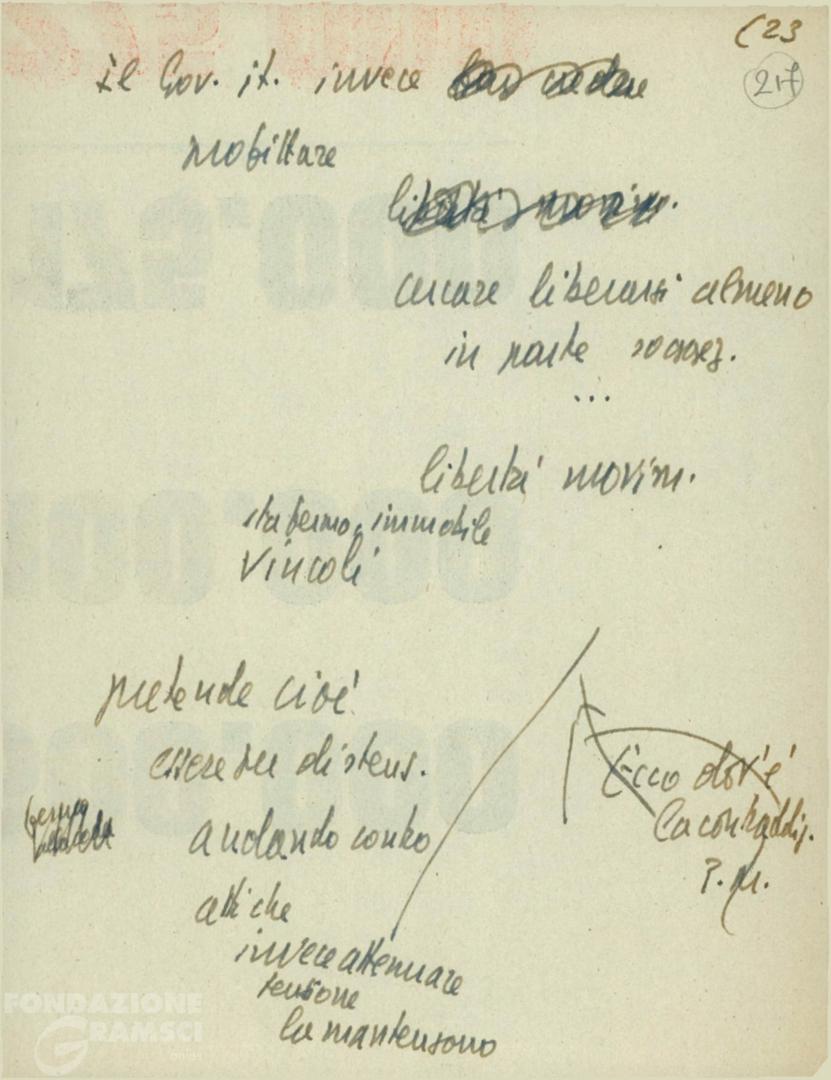 (23
217
Il Gov. it. invece
mobilitare
libertà movim.
cercare liberarsi almeno
in parte soggez.
...
libertà movim.
sta fermo, immobile
vincoli
pretende cioè
essere per distens.
andando contro
atti che
invece attenuare
tensione
la mantengono
Ecco dov'è
la contraddiz.
P.M.
FONDAZIONE
GRAMSCI